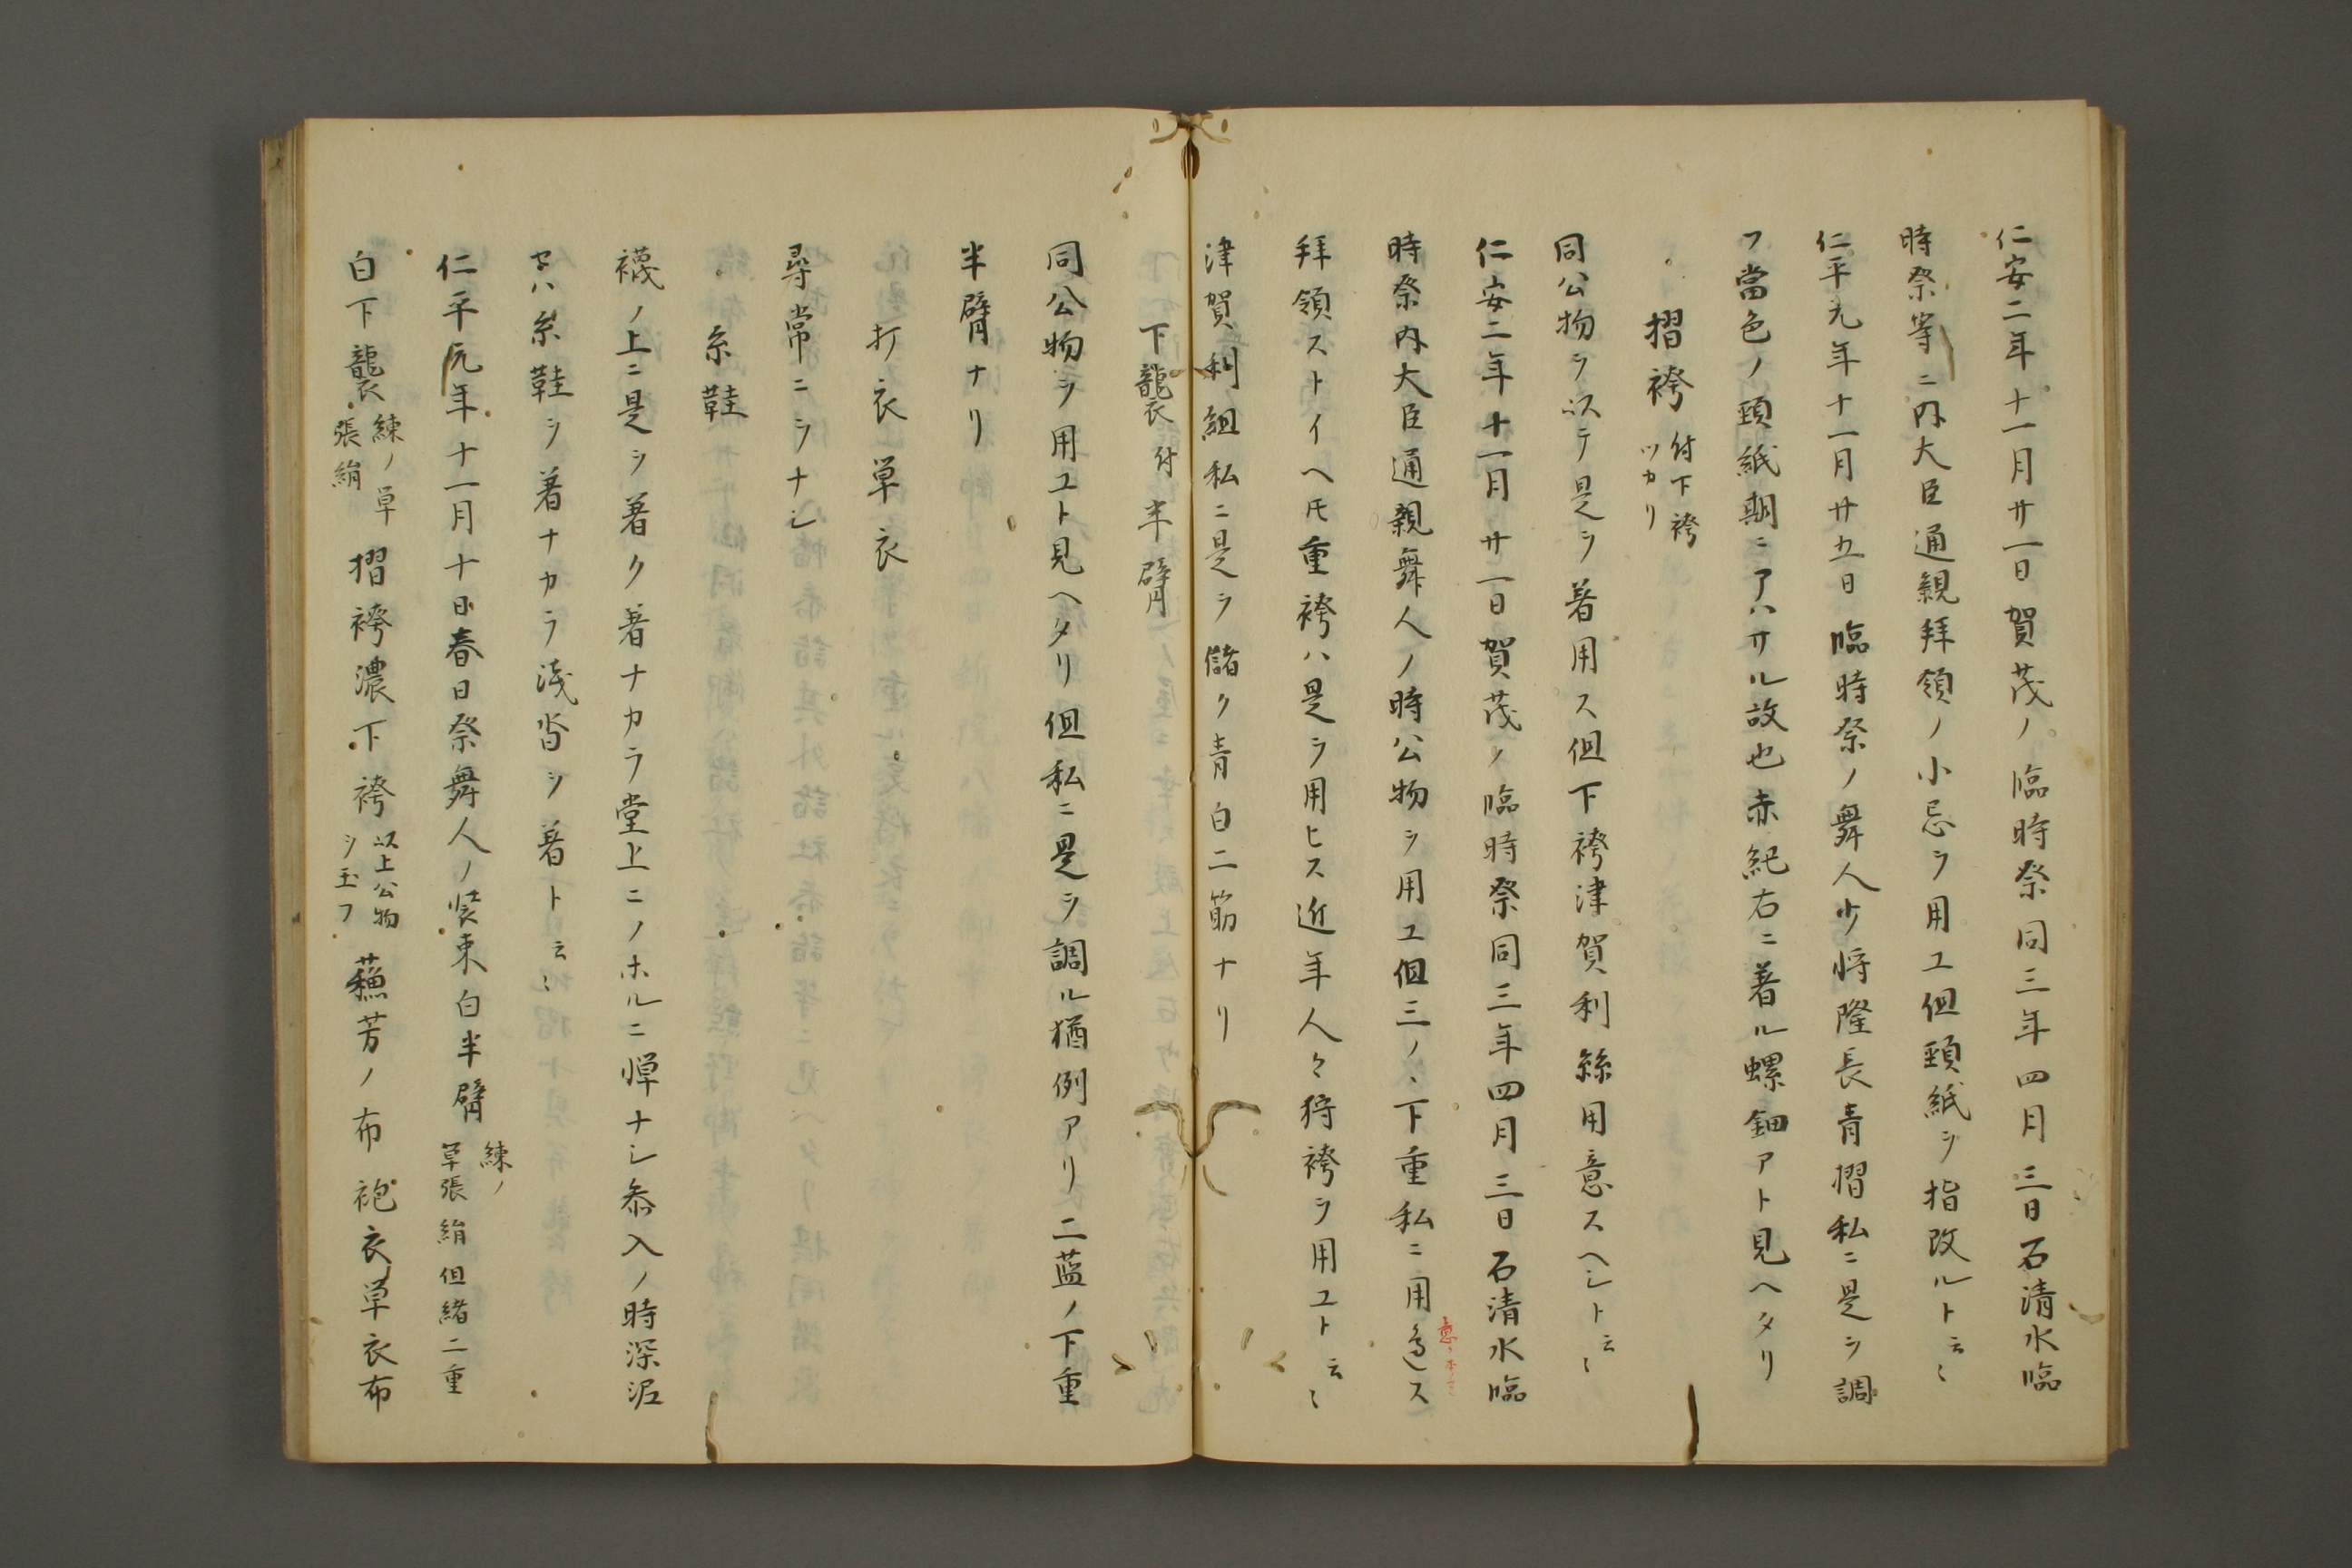 仁安二年十一月廿一日賀茂ノ臨時祭同三年四月三日石清水臨
時祭等ニ内大臣通親拝領ノ小忌ヲ用ユ但頸紙ヲ指改ルト云〻
仁平元年十一月廿五日臨時祭ノ舞人少将隆長青摺私ニ是ヲ調
フ當色ノ頸紙期ニアハサル故也赤紀右ニ著ル螺鈿アト見ヘタリ
摺袴 付下袴
ツカリ
同公物ヲ以テ是ヲ著用ス但下袴津賀利絲用意スヘシト云〻
仁安二年十一月廿一日賀茂ノ臨時祭同三年四月三日石清水臨
時祭内大臣通親舞人ノ時公物ヲ用ユ但三ノ下重私ニ用ス
拝領ストイヘモ重袴ハ是ヲ用ヒス近年人々狩袴ヲ用ユト云〻
津賀利組私ニ是ヲ儲ク青白二筋ナリ
下襲 付半臂
同公物ヲ用ユト見ヘタリ但私ニ是ヲ調ル猶例アリ二藍ノ下重
半臂ナリ
打衣単衣
尋常ニシナシ
糸鞋
襪ノ上ニ是ヲ著ク著ナカラ堂上ニノホルニ憚ナシ参入ノ時深泥
ハ糸鞋ヲ著ナカラ淺沓ヲ著ト云〻
仁平元年十一月十日春日祭舞人ノ装束白半臂 練ノ
草張絹但緒二重
白下襲 練ノ草
張絹 摺袴濃下袴 以上公物
ヲ玉フ 蘓芳ノ布袍衣草衣布